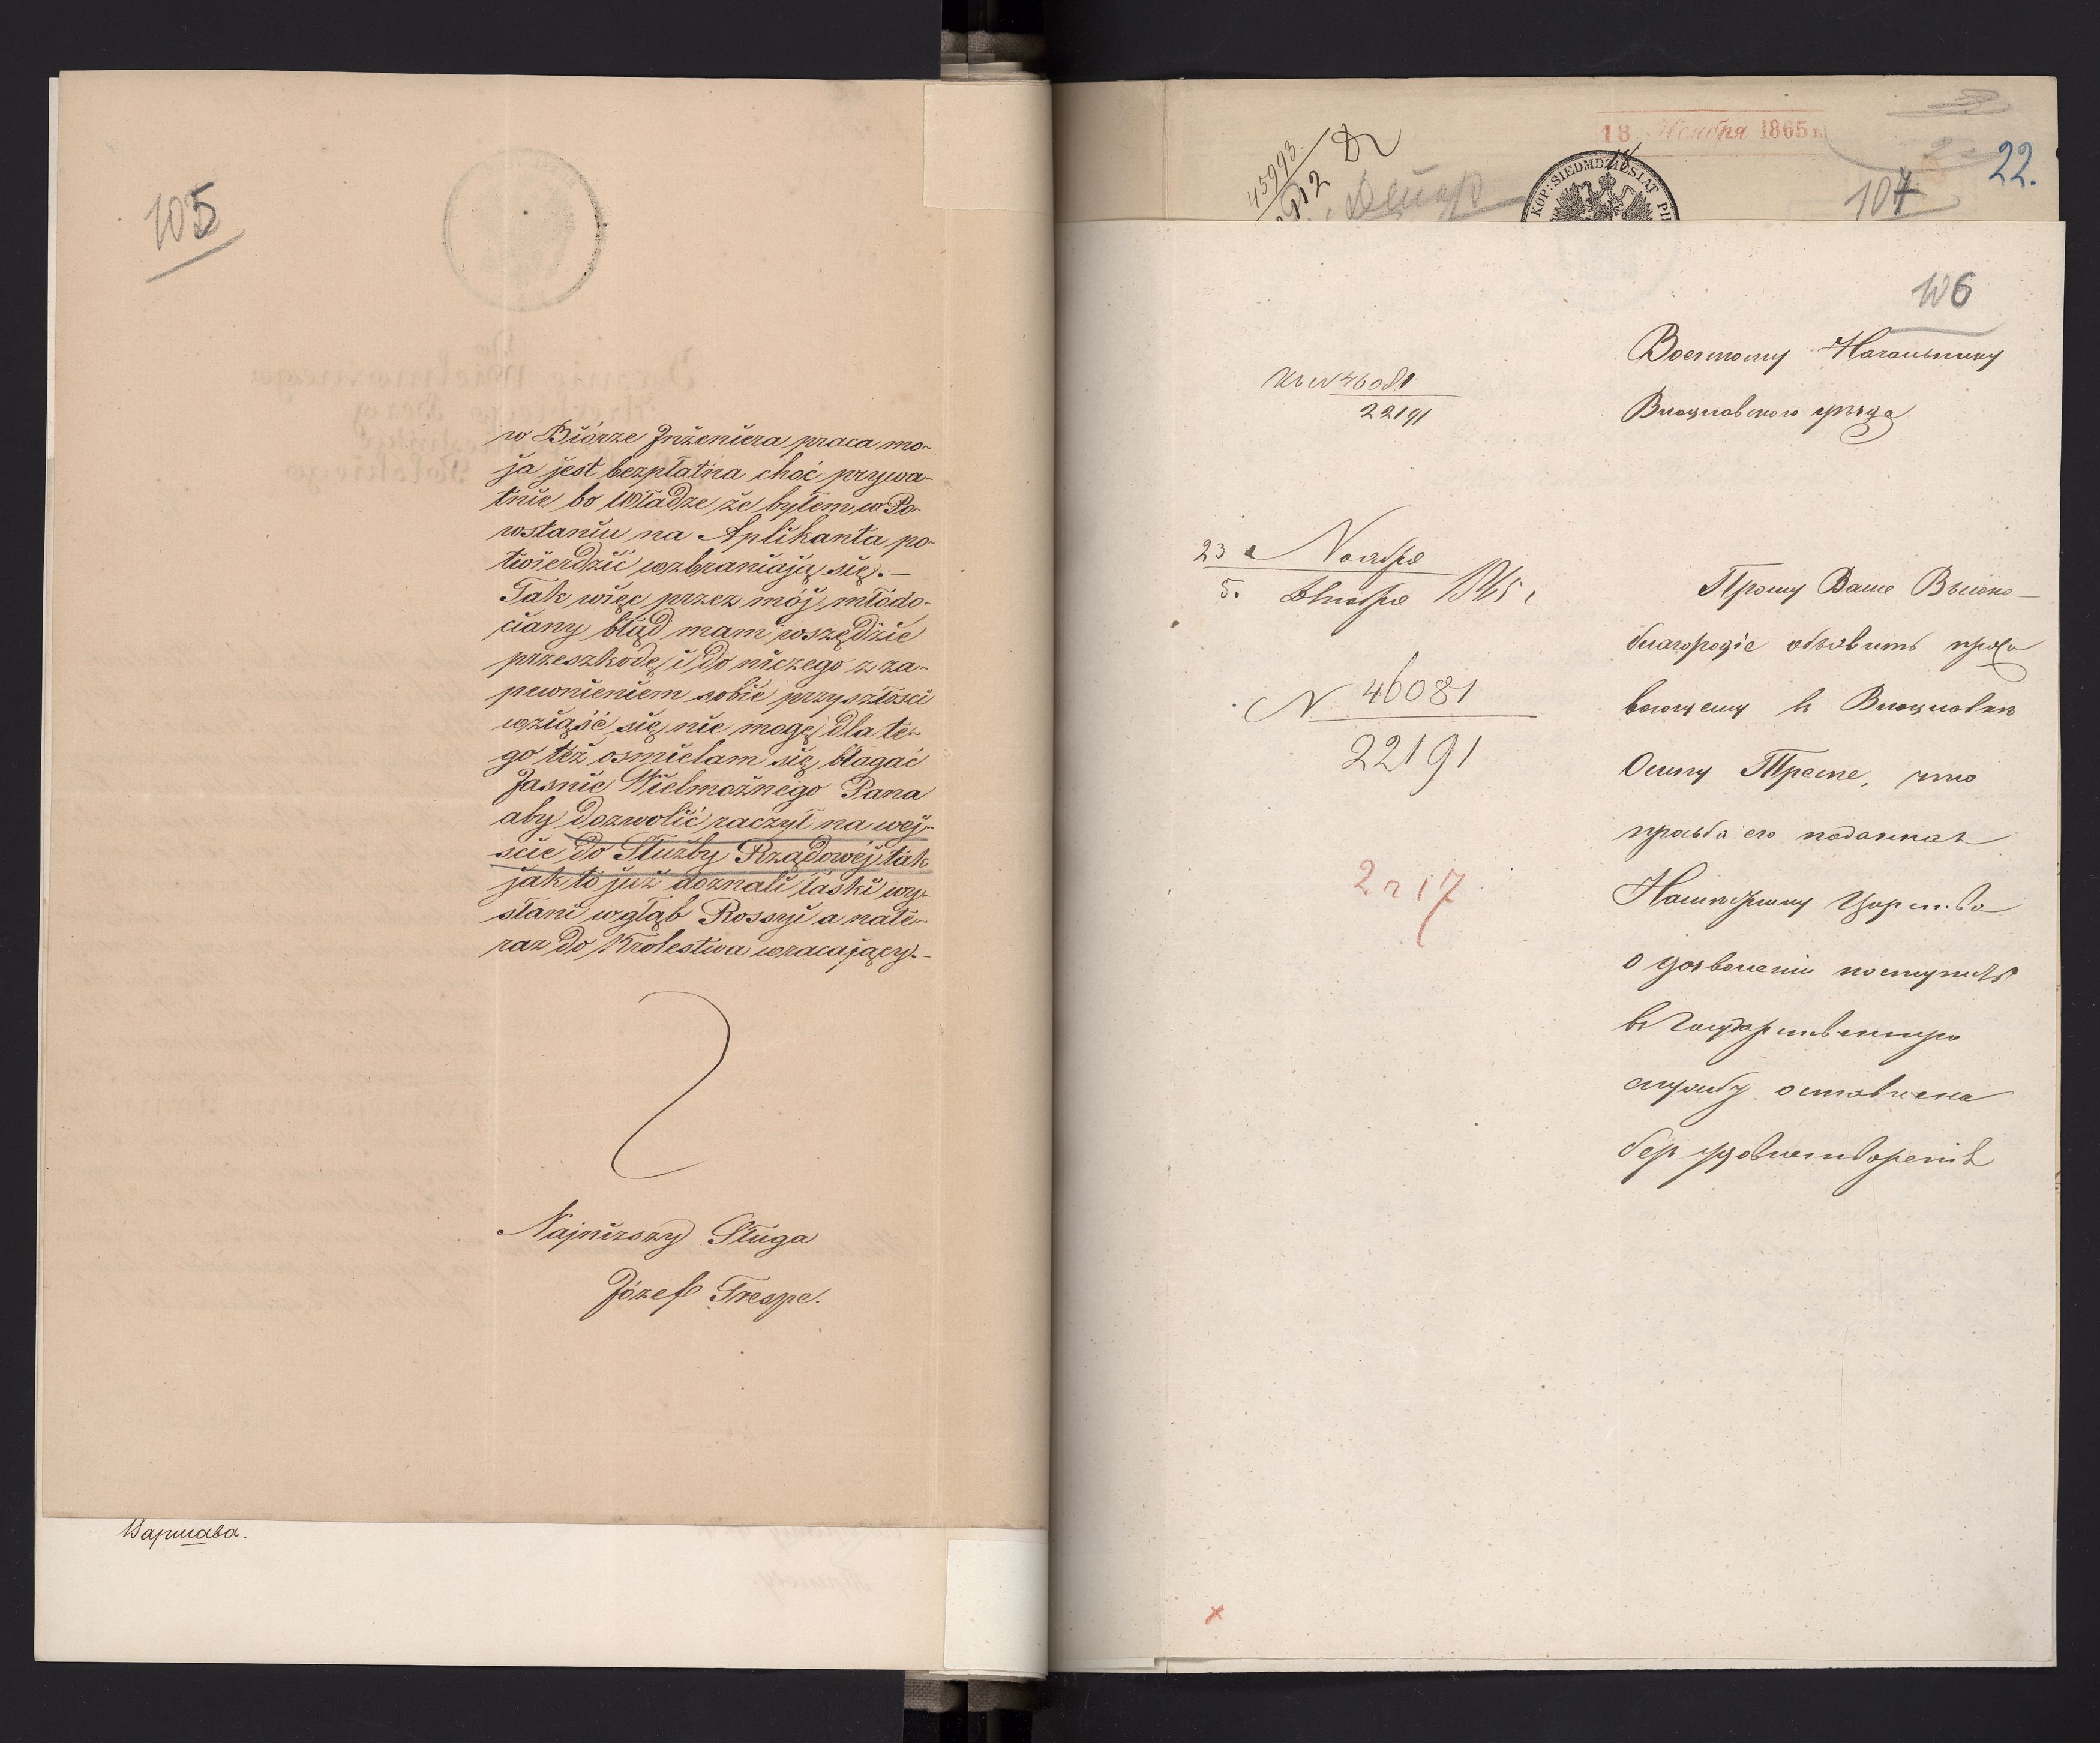 105
w Biórze Inżeniera praca mo-
ja jest bezpłatna choć prywa-
tnie bo Władze że byłem w Po-
wstaniu na Aplikanta po-
twierdzić wzbraniają się. —
Tak więc przez mój młodo-
ciany błąd mam wszędzie
przeszkodę i do niczego z za-
pewnieniem sobie przyszłości
wziąść się nie mogę dla te-
go też osmielam się błagać
Jasnie Wielmożnego Pana
aby dozwolić raczył na wej-
scie do Służby Rządowéj tak
jak to już doznali łaski wy-
słani w głąb Rossyi a nate-
raz do Krolestwa wracający. —
Najnizszy Sługa
Józef Trespe.
Варшава.
18 Ноября 1865
22.
45993
912
KOP: SIEDMDZIESIAT
104
106
Военному Начальнику
Влоцлавского уѣзда
46081
22191
23 Ноября
5. Декабря 1865 г
Прошу Ваше Высоко-
благородіе объявить прожи
вающему въ Влоцлавкѣ
Осипу Треспе, что
просьба его поданная
Намѣстнику Царства
о дозволеніи поступить
въ Государственную
службу оставлена
безъ удовлетворенія
N 46081
22191
2 л 17
x